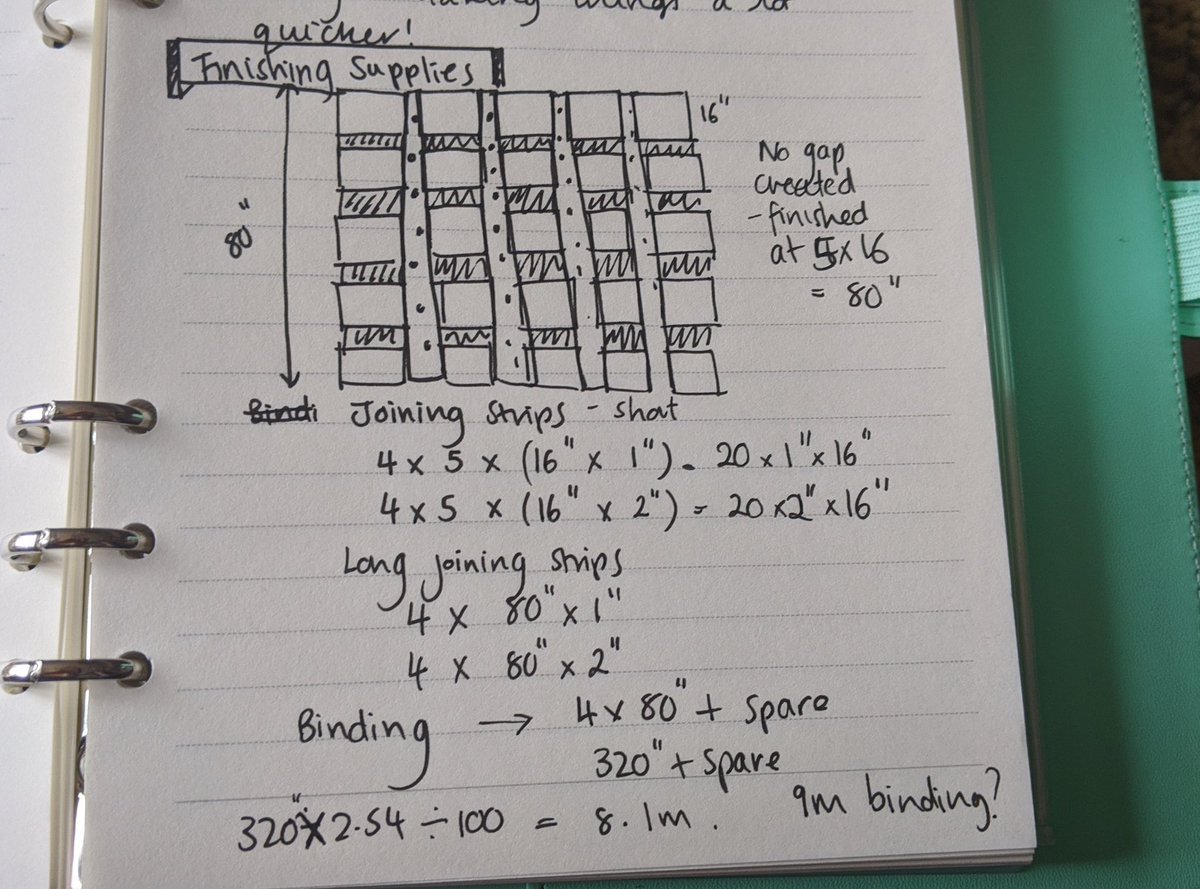 quicker!
Finishing Supplies
16"
80"
No gap
created
- finished
at 5x16
= 80"
Joining Strips - Short
4 x 5 x (16" x 1") = 20 x 1" x 16"
4 x 5 x (16" x 2") = 20 x 2" x 16"
Long joining strips
4 x 80" x 1"
4 x 80" x 2"
Binding → 4 x 80" + spare
320" + spare
320" x 2.54 ÷ 100 = 8.1m.
9m binding?